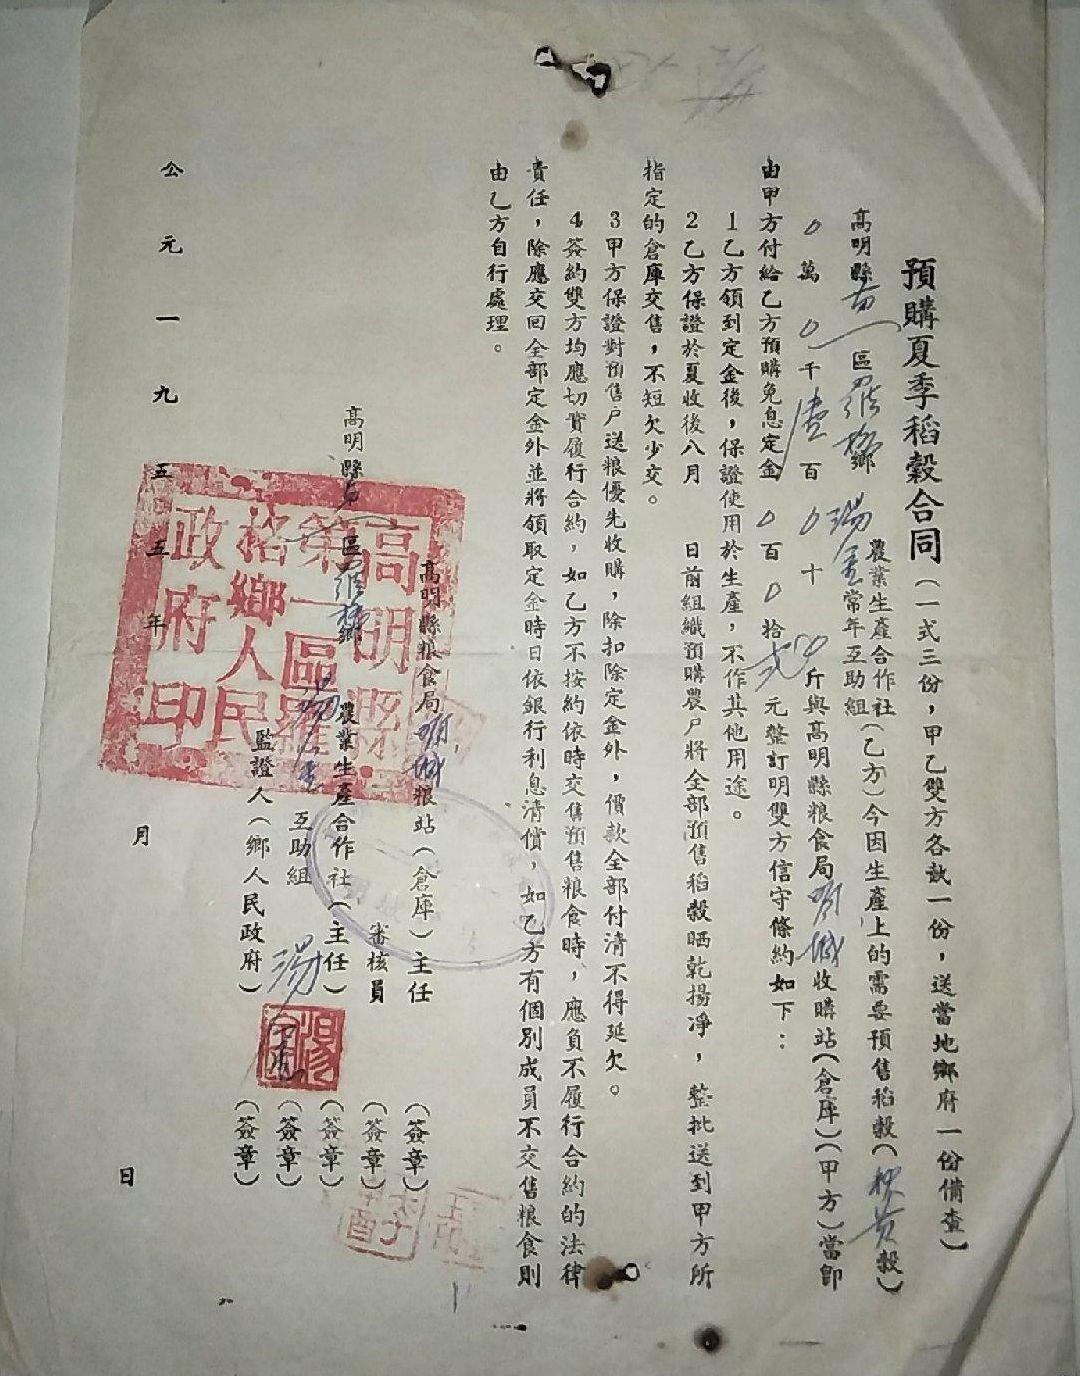 預購夏季稻穀合同(一式三份,甲乙雙方各執一份,送當地鄉府一份備查)
高明縣 區羅格鄉 湯金 農業生產合作社 常年互助組(乙方)今因生產上的需要預售稻穀( 穀)
0萬0千壹百0十0斤與高明縣粮食局明城收購站(倉庫)(甲方)當即
由甲方付給乙方預購免息定金0百0拾弍元整訂明雙方信守條約如下:
1乙方領到定金後,保證使用於生產,不作其他用途。
2乙方保證於夏收後八月 日前組織預購農户將全部預售稻穀晒乾揚净,整批送到甲方所
指定的倉庫交售,不短欠少交。
3甲方保證對預售户送粮優先收購,除扣除定金外,價款全部付清不得延欠。
4簽約雙方均應切實履行合約,如乙方不按約依時交售預售粮食時,應負不履行合約的法律
責任,除應交回全部定金外並將領取定金時日依銀行利息清償,如乙方有個別成員不交售粮食則
由乙方自行處理。
高明縣粮食局明城粮站(倉庫)主任(簽章)
審核員(簽章)
高明縣 區羅格鄉 農業生產合作社(主任)(簽章)
湯金 互助組 湯 (簽章)
監證人(鄉人民政府)(簽章)
公元一九五五年 月 日
高明縣
第一區羅
格鄉人民
政府印